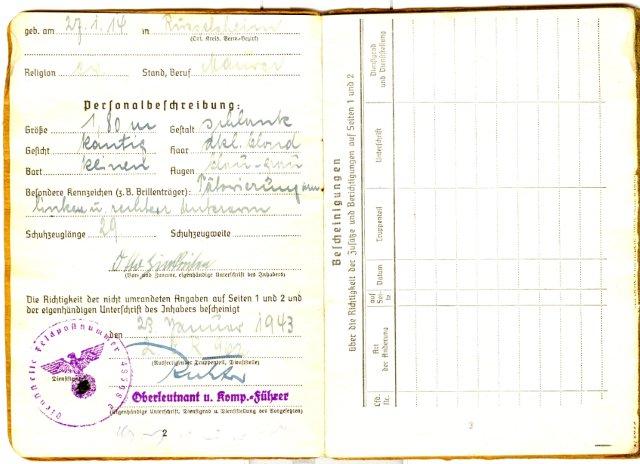 geb. am 27.1.14 in Rüsselsheim
(Ort, Kreis, Verw.-Bezirk)
Religion ev Stand, Beruf Maurer
Personalbeschreibung:
Größe 1,80 m Gestalt schlank
Gesicht kantig Haar dkl. blond
Bart keinen Augen blau-grau
Besondere Kennzeichen (z.B. Brillenträger): Tätowierung am
linken u. rechten Unterarm
Schuhzeuglänge 29 Schuhzeugweite
Otto
(Vor- und Zuname, eigenhändige Unterschrift des Inhabers)
Die Richtigkeit der nicht umrandeten Angaben auf Seiten 1 und 2 und
der eigenhändigen Unterschrift des Inhabers bescheinigt
den 23. Januar 1943
(Ausfertigender Truppenteil, Dienststelle)
Dienststelle Feldpostnummer
Dienstsiegel
Oberleutnant u. Komp.-Führer
(Eigenhändige Unterschrift, Dienstgrad u. Dienststellung des Vorgesetzten)
2
Bescheinigungen
über die Richtigkeit der Zusätze und Berichtigungen auf Seiten 1 und 2
Lfd. Nr.
Art der Änderung
auf Seite
Datum
Truppenteil
Unterschrift
Dienstgrad und Dienststellung
3